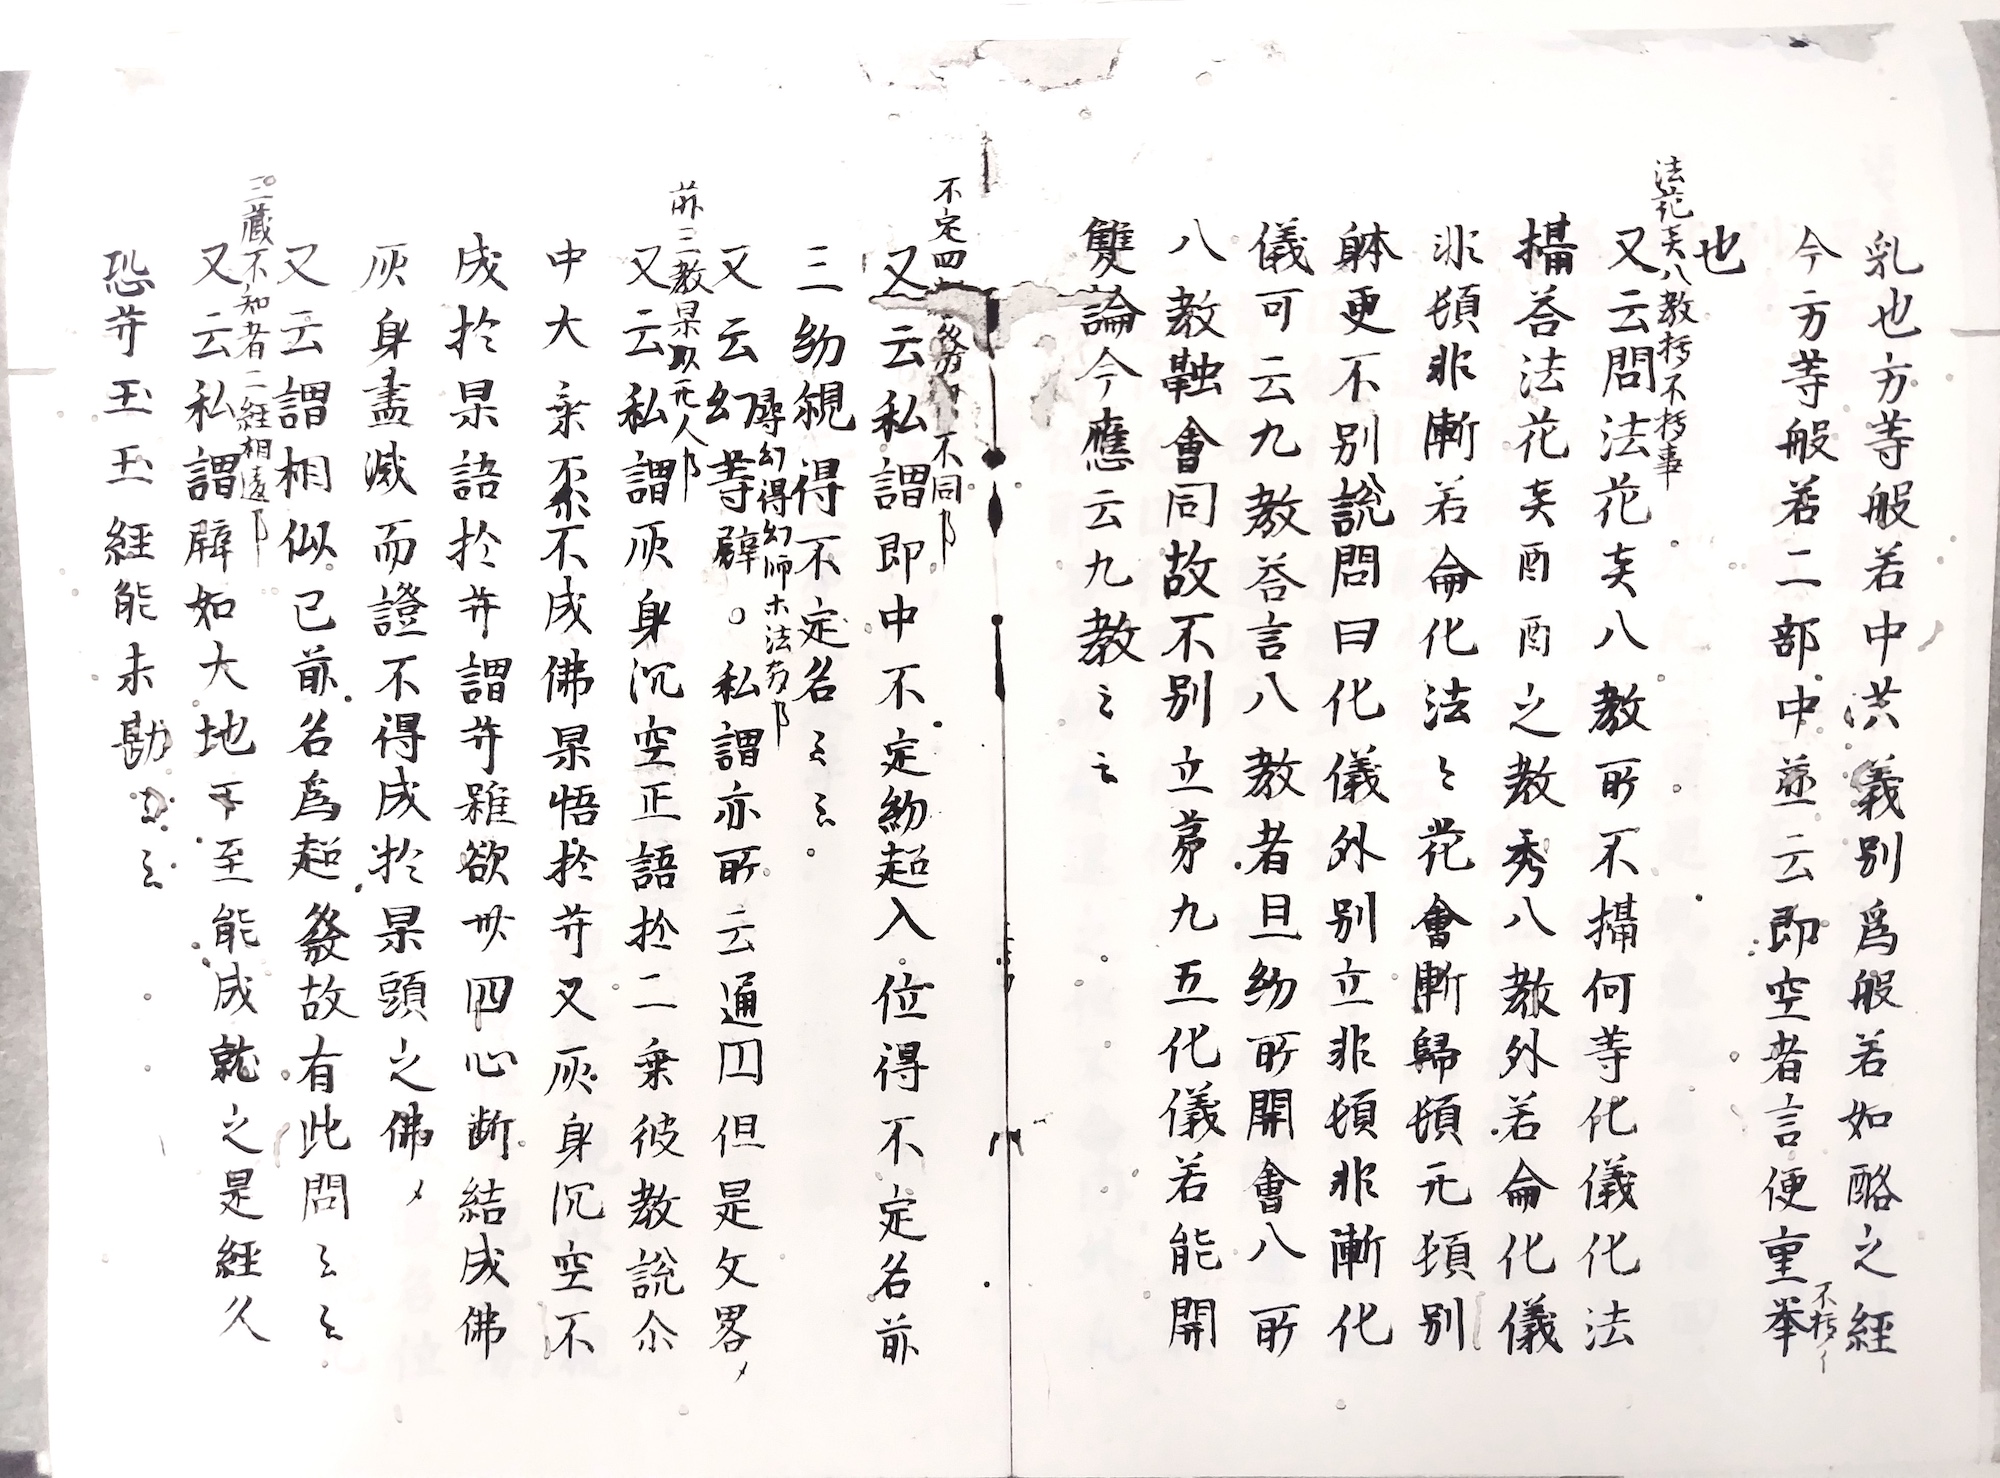 乳也方等般若中洪義別爲般若如酪之經
今方等般若二部中並云即空者言便重举
也
法花亥八教摂不摂事
又云問法花亥八教所不攝何等化儀化法
攝荅法花亥酉酉之教秀八教外若侖化儀
非頓非漸若侖化法〻花會漸歸頓元頓別
躰更不別説問曰化儀外別立非頓非漸化
儀可云九教荅言八教者且約所開會八所
八教融會同故不別立第九五化儀若能開
雙論今應云九教〻云
不定四 不同
又云私謂即中不定約超入位得不定名前
三約観得不定名〻〻
尋幻得幻師 法
又云幻等譬。私謂亦所云通囚但是文畧
前三教果以无人
又云私謂灰身沉空正語扵二乗彼教説尒
中大乗禀不成佛果悟扵菩又灰身沉空不
成扵果語扵菩謂菩雖欲卅四心断結成佛
灰身盡滅而證不得成扵果頭之佛
又云謂相似已前名爲超發故有此問〻〻
三蔵不知者二経相違
又云私謂譬如大地下至能成就之是經久
恐菩玉玉經能未勘〻〻